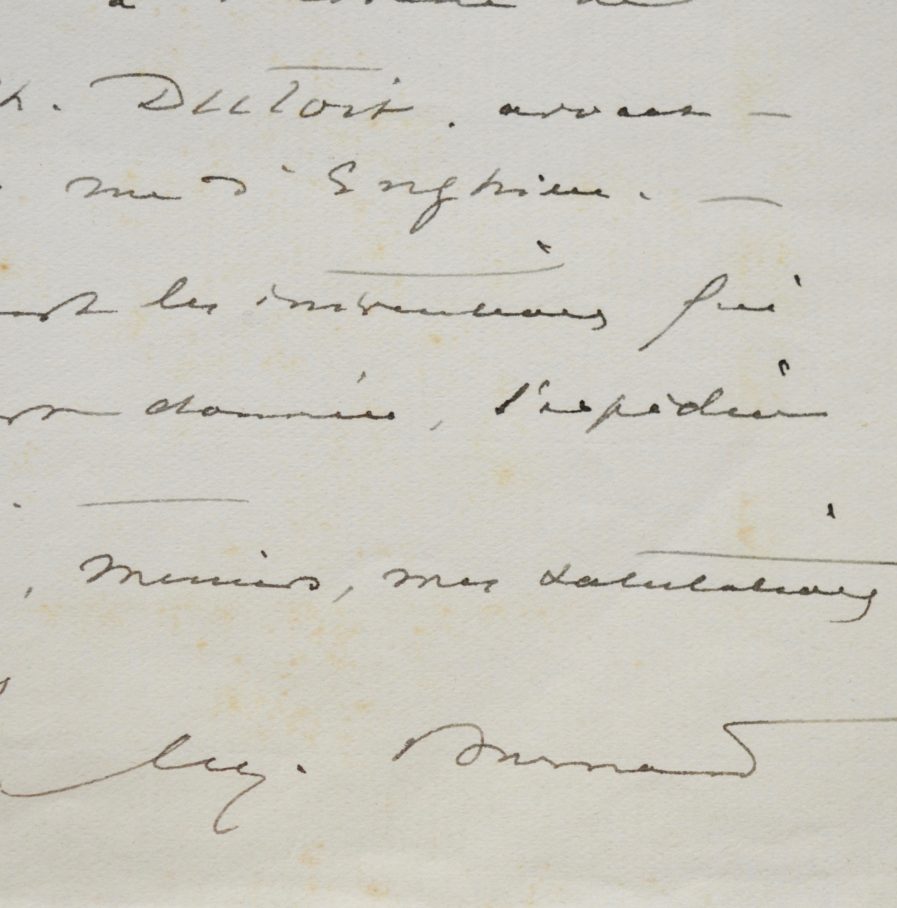 à
de
h. Dutoit. avocat —
rue d'Enghien. —
les instructions qui
données, l'expédier
, Messieurs, mes salutations
Eug. Burnand